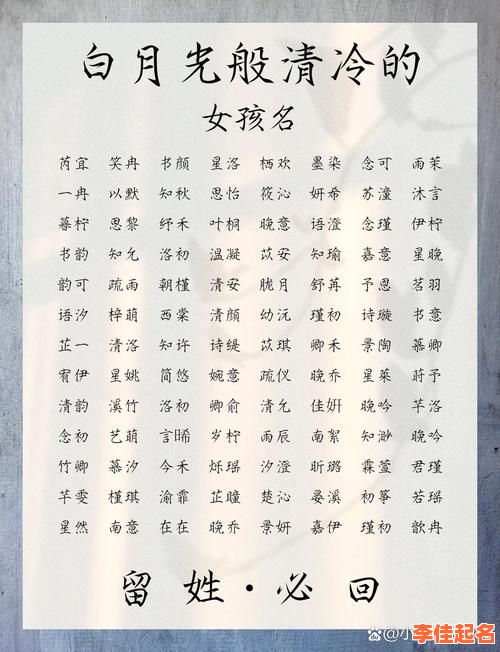 白月光般清冷的
女孩名
芮宜 笑冉 书颜 星洛 栖欢 墨染 念可 雨茉
一冉 以默 知秋 思怡 筱沁 妍希 苏潼 沐言
暮柠 思黎 纾禾 叶桐 晚意 语澄 念瑾 伊柠
书韵 知允 洛初 温凝 苡安 知瑜 嘉意 星晚
韵可 疏雨 朝槿 清安 胧月 舒苒 予恩 茗羽
语汐 梓萌 西棠 清颜 幼沅 瑾初 诗璇 书意
芷一 清洛 知许 诗缇 苡琪 卿禾 景陶 慕卿
宥伊 星姚 简悠 婉意 疏仪 晚乔 星莱 莳予
清韵 溪竹 洛初 卿俞 清允 佳妍 晚吟 芊洛
念初 艺萌 言晞 岁柠 雨辰 南絮 知渺 晚吟
竹卿 慕汐 今禾 烁瑶 汐澄 昕璐 霖萱 君瑾
芊雯 槿琪 渝霏 芷瞳 楚沁 晏溪 初筝 若瑶
星然 南意 在在 晚乔 景妍 嘉伊 瑾初 歆冉
留姓·必回
@小
李佳起名